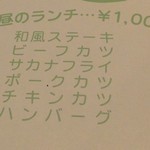 昼のランチ…¥1,00
和風ステーキ
ビーフカツ
サカナフライ
ポークカツ
チキンカツ
ハンバーグ